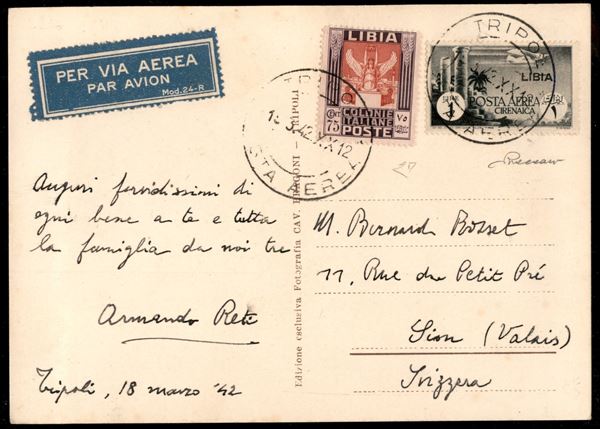 PER VIA AEREA
PAR AVION
Mod. 24-R
LIBIA
CENT 75
COLONIE
ITALIANE
POSTE
٧٥
TRIPOLI
POSTA AEREA
LIBIA
POSTA AEREA
CIRENAICA
LIRE 1
١
TRIPOLI
AEREA
Auguri fervidissimi di
ogni bene a te e tutta
la famiglia da noi tre
Armando Reti
Tripoli, 18 marzo '42
Edizione esclusiva Fotografia CAV. - TRIPOLI
M. Bernard Bosset
11, Rue du Petit Pré
Sion (Valais)
Svizzera